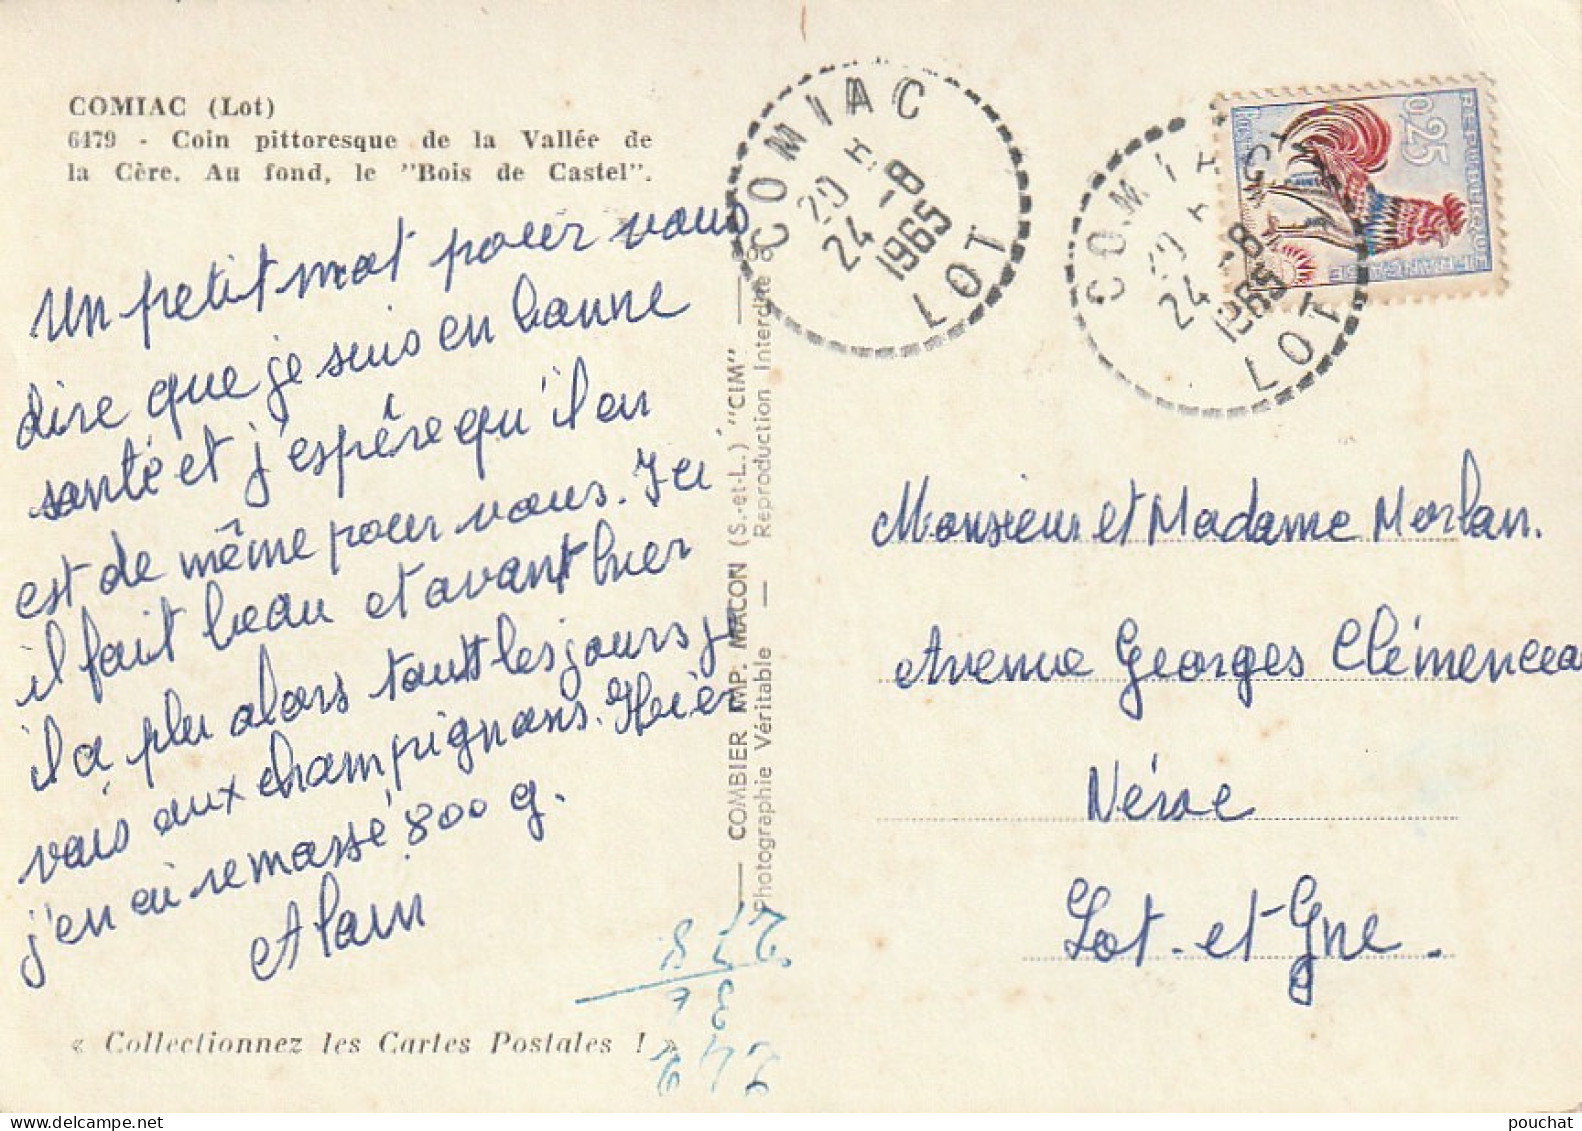 COMIAC (Lot)
6479 - Coin pittoresque de la Vallée de
la Cère. Au fond, le "Bois de Castel".
Un petit mot pour vous
dire que je suis en bonne
santé et j'espère qu'il en
est de même pour vous. Ici
il fait beau et avant hier
il a plu alors tous les jours je
vais aux champignons. Hier
j'en ai ramassé 800 g.
Alain
« Collectionnez les Cartes Postales ! »
COMBIER IMP. MACON (S.-et-L.) "CIM"
Photographie Véritable — Reproduction Interdite
COMIAC
20 H
24 -8
1965
LOT
COMIAC
20 H
24 -8
1965
LOT
REPUBLIQUE FRANÇAISE
0,25
Monsieur et Madame Morlan.
Avenue Georges Clémenceau
Nérac
Lot-et-Gne.
pouchat